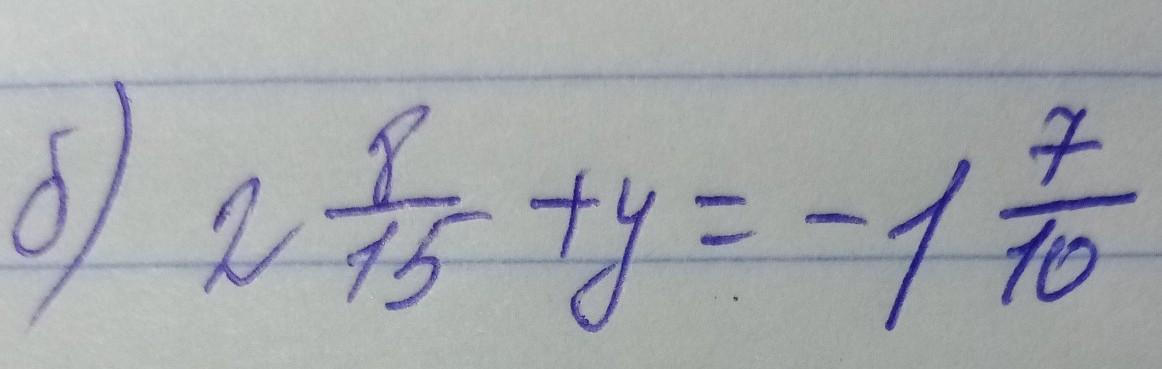 б) 2 8/15 + y = - 1 7/10